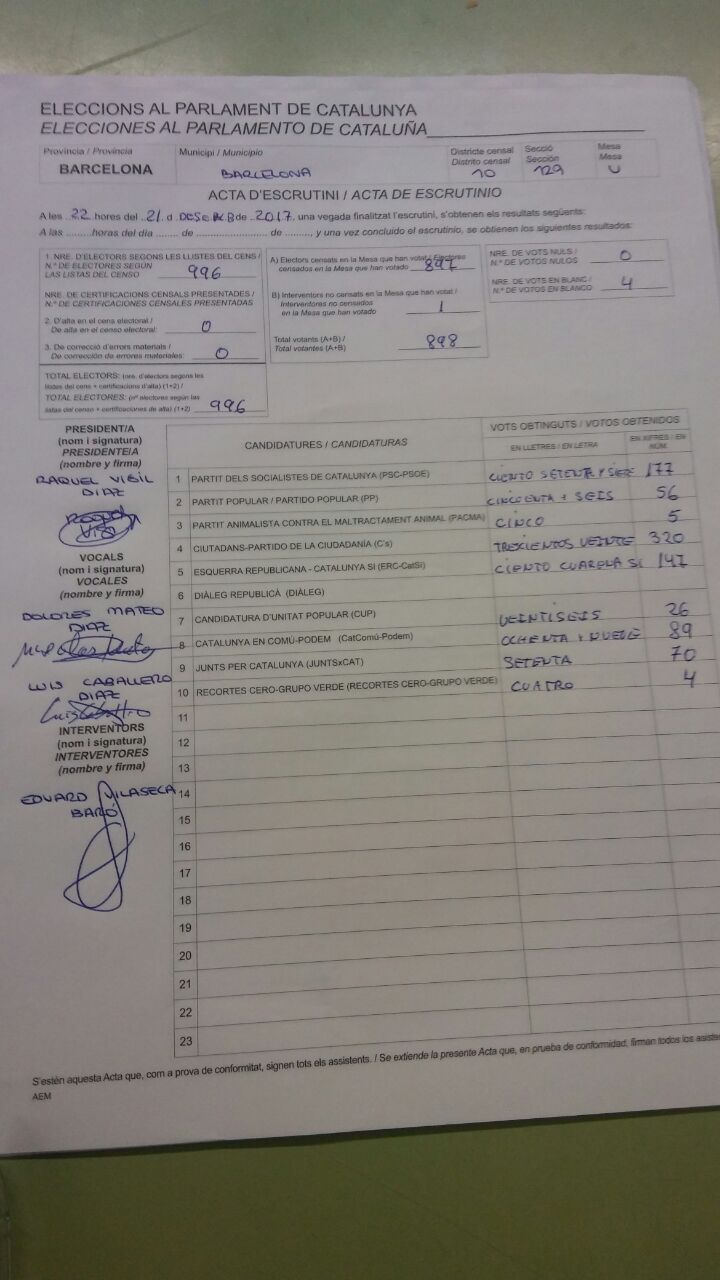 ELECCIONS AL PARLAMENT DE CATALUNYA
ELECCIONES AL PARLAMENTO DE CATALUÑA
Provincia / Provincia Municipi / Municipio Districte censal Secció Mesa
Distrito censal Sección Mesa
BARCELONA BARCELONA 10 129 U
ACTA D'ESCRUTINI / ACTA DE ESCRUTINIO
A les 22 hores del 21 d DESEMB de 2017, una vegada finalitzat l'escrutini, s'obtenen els resultats següents:
A las ........ horas del día ........ de ........................ de ........., y una vez concluido el escrutinio, se obtienen los siguientes resultados:
1. NRE. D'ELECTORS SEGONS LES LLISTES DEL CENS /
N.º DE ELECTORES SEGÚN
LAS LISTAS DEL CENSO 996
NRE. DE CERTIFICACIONS CENSALS PRESENTADES /
N.º DE CERTIFICACIONES CENSALES PRESENTADAS
2. D'alta en el cens electoral /
De alta en el censo electoral: 0
3. De correcció d'errors materials /
De corrección de errores materiales: 0
TOTAL ELECTORS: (nre. d'electors segons les
llistes del cens + certificacions d'alta) (1+2) /
TOTAL ELECTORES: (nº electores según las
listas del censo + certificaciones de alta) (1+2) 996
A) Electors censats en la Mesa que han votat / Electores
censados en la Mesa que han votado 897
B) Interventors no censats en la Mesa que han votat /
Interventores no censados
en la Mesa que han votado 1
Total votants (A+B) /
Total votantes (A+B) 898
NRE. DE VOTS NULS /
N.º DE VOTOS NULOS 0
NRE. DE VOTS EN BLANC /
N.º DE VOTOS EN BLANCO 4
PRESIDENT/A
(nom i signatura)
PRESIDENTE/A
(nombre y firma)
RAQUEL VIGIL
DIAZ
VOCALS
(nom i signatura)
VOCALES
(nombre y firma)
DOLORES MATEO
DIAZ
LUIS CABALLERO
DIAZ
INTERVENTORS
(nom i signatura)
INTERVENTORES
(nombre y firma)
EDUARD VILASECA
BARÓ
CANDIDATURES / CANDIDATURAS
VOTS OBTINGUTS / VOTOS OBTENIDOS
EN LLETRES / EN LETRA EN XIFRES / EN
NÚM.
1 PARTIT DELS SOCIALISTES DE CATALUNYA (PSC-PSOE) CIENTO SETENTA Y SIETE 177
2 PARTIT POPULAR / PARTIDO POPULAR (PP) CINCUENTA Y SEIS 56
3 PARTIT ANIMALISTA CONTRA EL MALTRACTAMENT ANIMAL (PACMA) CINCO 5
4 CIUTADANS-PARTIDO DE LA CIUDADANÍA (C's) TRESCIENTOS VEINTE 320
5 ESQUERRA REPUBLICANA - CATALUNYA SÍ (ERC-CatSí) CIENTO 147
6 DIÀLEG REPUBLICÀ (DIÀLEG)
7 CANDIDATURA D'UNITAT POPULAR (CUP) VEINTISEIS 26
8 CATALUNYA EN COMÚ-PODEM (CatComú-Podem) OCHENTA Y NUEVE 89
9 JUNTS PER CATALUNYA (JUNTSxCAT) SETENTA 70
10 RECORTES CERO-GRUPO VERDE (RECORTES CERO-GRUPO VERDE) CUATRO 4
11
12
13
14
15
16
17
18
19
20
21
22
23
S'estén aquesta Acta que, com a prova de conformitat, signen tots els assistents. / Se extiende la presente Acta que, en prueba de conformidad, firman todos los
AEM